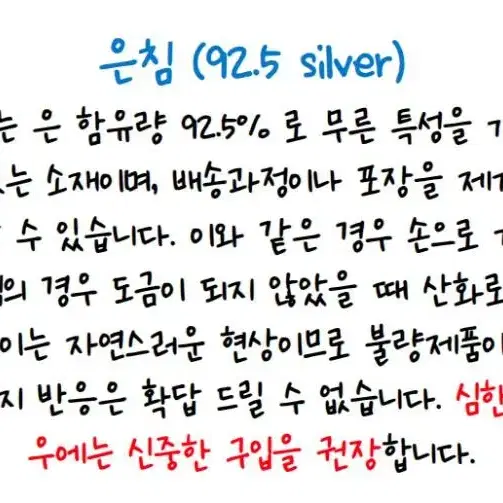 은침 (92.5 silver)
는 은 함유량 92.5% 로 무른 특성을
는 소재이며, 배송과정이나 포장을 제거
수 있습니다. 이와 같은 경우 손으로
의 경우 도금이 되지 않았을 때 산화로
이는 자연스러운 현상이므로 불량제품이
지 반응은 확답 드릴 수 없습니다. 심한
우에는 신중한 구입을 권장합니다.